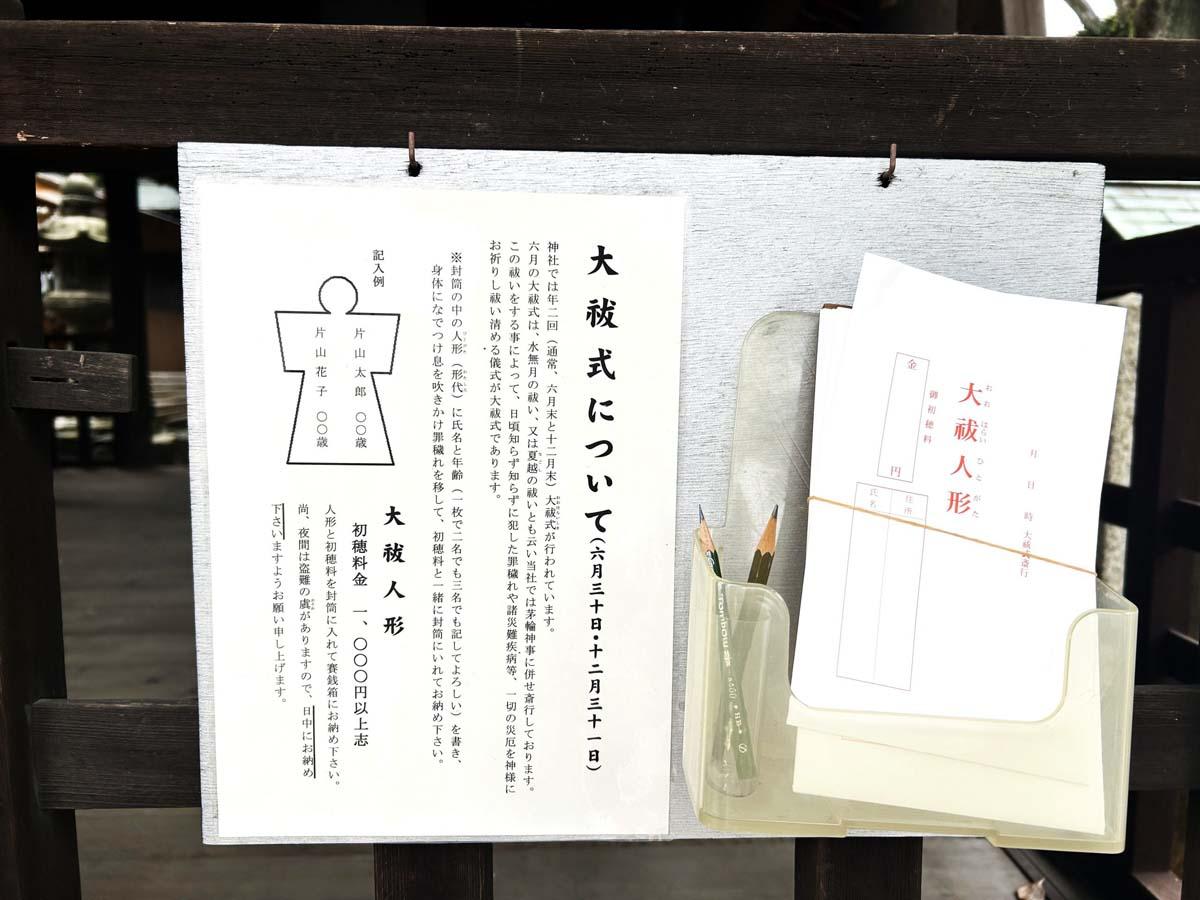 大祓式について(六月三十日・十二月三十一日)
神社では年二回(通常、六月末と十二月末)大祓式が行われています。
六月の大祓式は、水無月の祓い、又は夏越の祓いとも云い当社では茅輪神事に併せ斎行しております。
この祓いをする事によって、日頃知らず知らずに犯した罪穢れや諸災難疾病等、一切の災厄を神様に
お祈りし祓い清める儀式が大祓式であります。
※封筒の中の人形(形代)に氏名と年齢(一枚で二名でも三名でも記してよろしい)を書き、
身体になでつけ息を吹きかけ罪穢れを移して、初穂料と一緒に封筒にいれてお納め下さい。
記入例
片山太郎 〇〇歳
片山花子 〇〇歳
大祓人形
初穂料金 一、〇〇〇円以上志
人形と初穂料を封筒に入れて賽銭箱にお納め下さい。
尚、夜間は盗難の虞がありますので、日中にお納め
下さいますようお願い申し上げます。
月 日 時 大祓式斎行
大祓人形
おお はらい ひと がた
御初穂料
金 円
住所
氏名